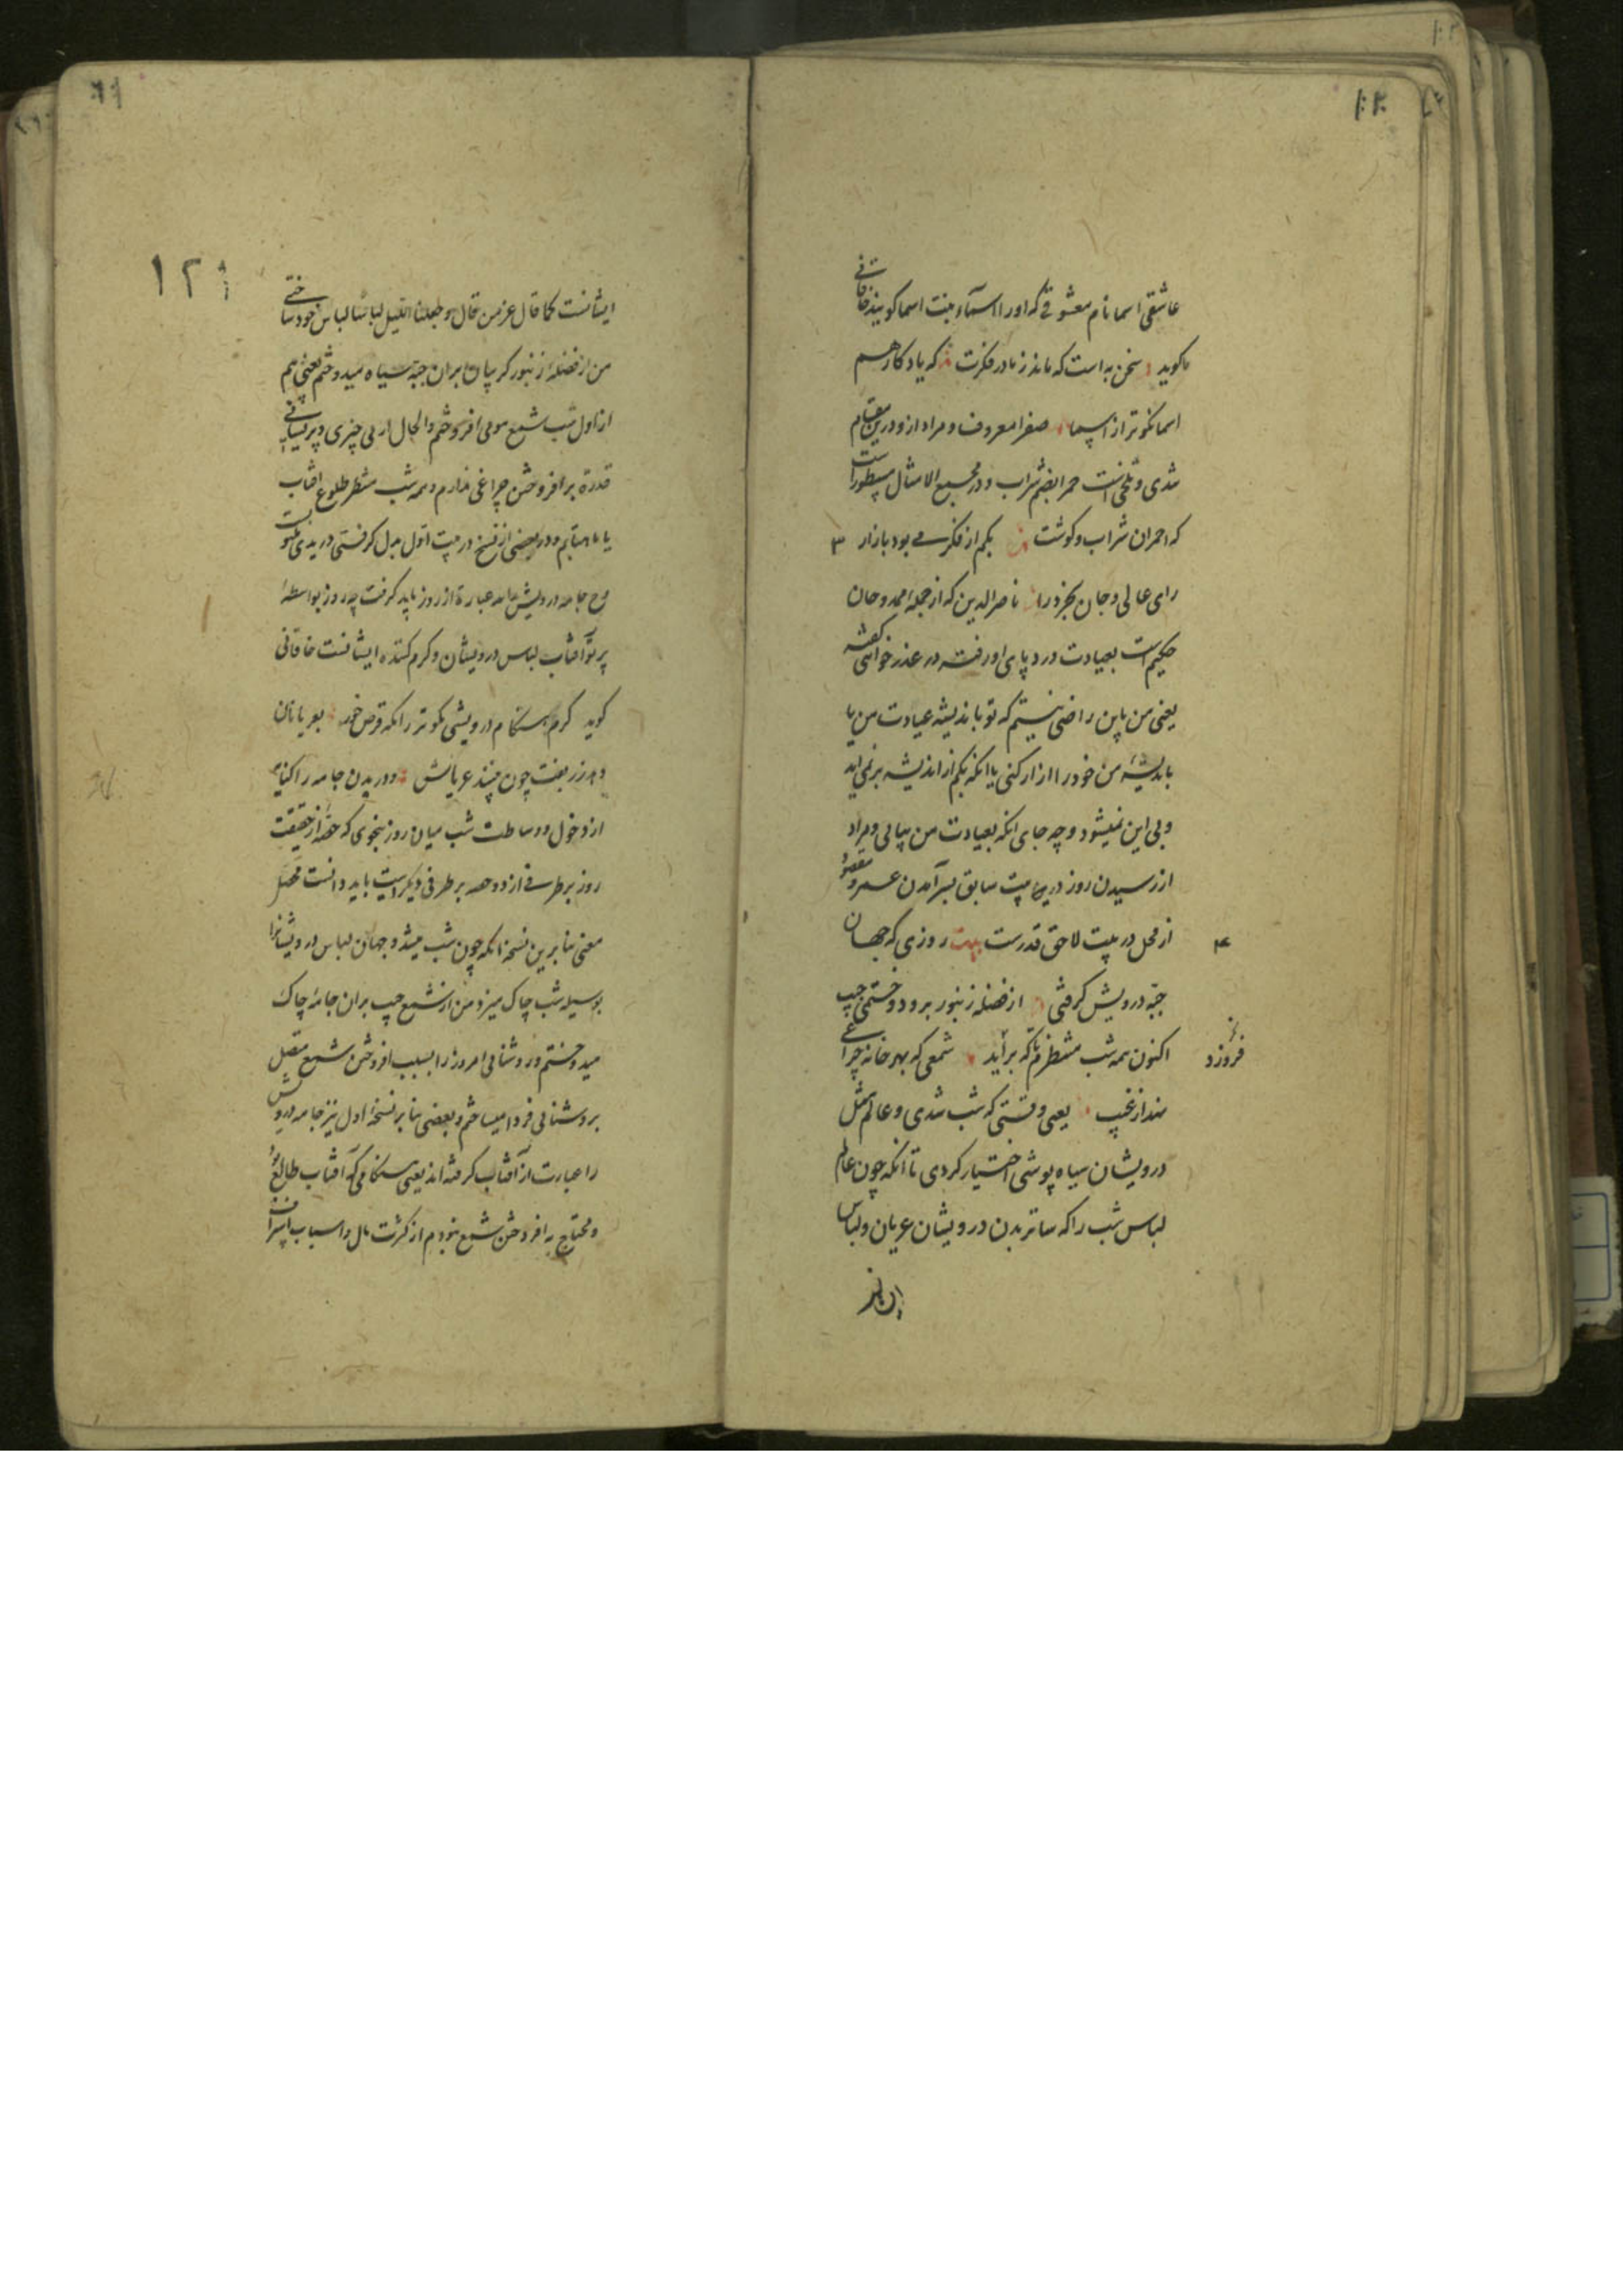 عاشقی اسما نام معشوقی که او را اسماء بنت اسما گویند خاقانی
گوید سخن به است که ماند ز مادر فکرت که یادگار هم
اسما نکوتر از اسما صفرا معروف و مراد ازو درین مقام
شدی و تلخی است حمر بضم شراب و در مجمع الامثال مسطور است
که احمران شراب و گوشت بکم از فکر بود بازار ۳
رای عالی و جان بخرد را ناصرالدین که از جمله ممدوحان
حکیم است بعیادت درد پای او رفته در عذرخواهی گفته
یعنی من باین راضی نیستم که تو باندیشه عیادت من یا
باندیشه من خود را ازار کنی یا انکه بکم از اندیشه برنمی اید
و بی این نمیشود و چه جای انکه بعیادت من بیائی و مراد
از رسیدن روز درین بیت سابق بسر آمدن عمر و مقصود
از محل در بیت لاحق قدرست بیت روزی که جهان
جبه درویش گرفتی از فضله زنبور برو دوختمی جیب
اکنون همه شب منتظرم تا که برآید شمعی که بهر خانه چراغی
فروزد
نهد از غیب یعنی وقتی که شب شدی و عالم مثل
درویشان سیاه پوشی اختیار کردی تا انکه چون عالم
لباس شب را که ساتر بدن درویشان عریان و لباس
ایشانست
۱۲۱
ایشانست کما قال عز من قال و جعلنا اللیل لباسا لباس خود ساختی
من از فضله زنبور گریبان بران جبه سیاه میدوختم یعنی هم
از اول شب شمع مومی افروختم و الحال از بی چیزی و پریشانی
قدرة بر افروختن چراغی ندارم و همه شب منتظر طلوع افتاب
یا ماهتابم و در بعضی از نسخ در بیت اول بدل گرفتی دریدی
جامه درویش عبارة از روز باید گرفت چه روز بواسطه
پرتو آفتاب لباس درویشان و گرم کننده ایشانست خاقانی
گوید گرم هنگام درویشی نکوتر زانکه قرص خور بعریانان
دهد زربفت چون بیند عریانش و دریدن جامه را کنایه
از دخول و وساطت شب میان روز بنحوی که حصه از حقیقت
روز بر طرفی از دو حصه بر طرفی دیگر است باید دانست محصل
معنی بنابرین نسخه انکه چون شب میشد و جهان لباس درویشانرا
بوسیله شب چاک میزد من از شمع جیب بران جامه چاک
میدوختم و روشنائی امروز را بسبب افروختن شمع متصل
بروشنائی فردا میساختم و بعضی بنابر نسخه اول نیز جامه درویش
را عبارت از آفتاب گرفته اند یعنی هنگامی که آفتاب طالع بود
و محتاج به افروختن شمع نبودم از کثرت مال و اسباب اسراف